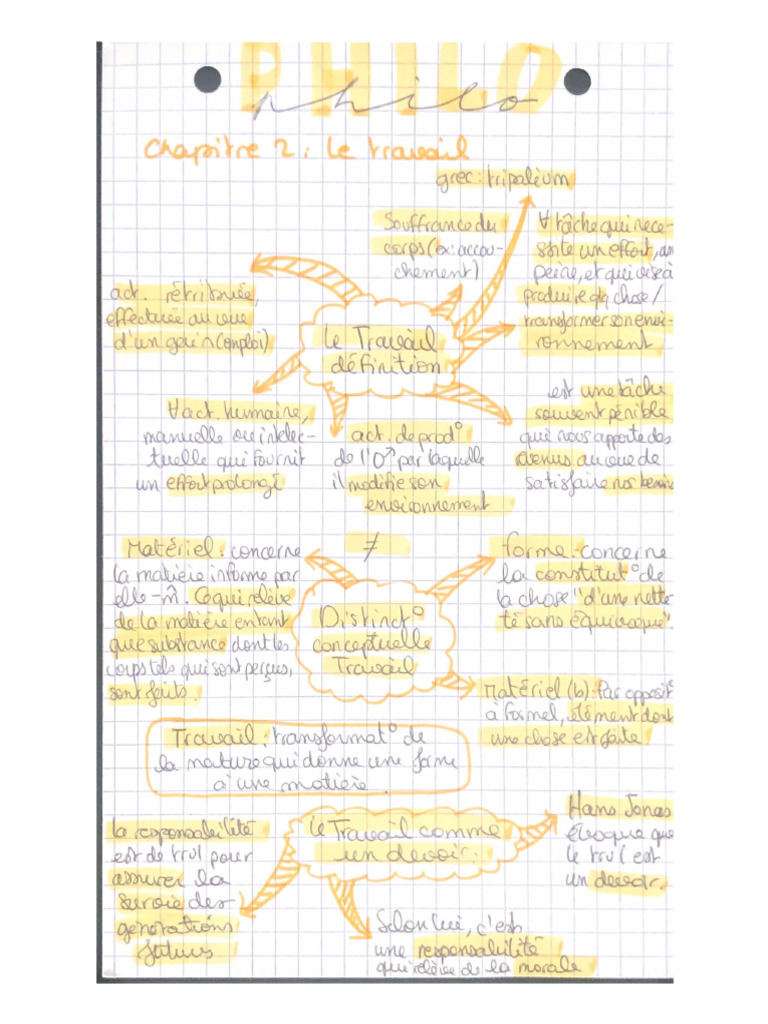 PHILO
philo
Chapitre 2 : Le travail
grec : tripalium
Souffrance du
corps (ex : accou-
chement)
∀ tâche qui néce-
ssite un effort, une
peine, et qui vise à
produire qlq chose /
transformer son envi-
ronnement
act. rétribuée,
effectuée au vue
d'un gain (emploi)
Le Travail
définition
∀ act. humaine,
manuelle ou intelec-
tuelle qui fournit
un effort prolongé
act. de prod°
de l'O♂ par laquelle
il modifie son
environnement
est une tâche
souvent pénible
qui nous apporte des
revenus au vue de
satisfaire nos besoins
≠
Matériel : concerne
la matière informe par
elle-m̂. Ce qui relève
de la matière en tant
que substance dont les
corps tels qui sont perçus,
sont faits.
Distinct°
conceptuelle
Travail
forme : concerne
la constitut° de
la chose "d'une nette
té sans équivoque".
Matériel (b) : Par opposit°
à formel, élément dont
une chose est faite
Travail : transformat° de
la nature qui donne une forme
à une matière.
Le Travail comme
un devoir.
Hans Jonas
évoque que
le trvl est
un devoir.
la responsabilité
est de trvl pour
assurer la
survie des
générations
futures
Selon lui, c'est
une responsabilité
qui relève de la morale